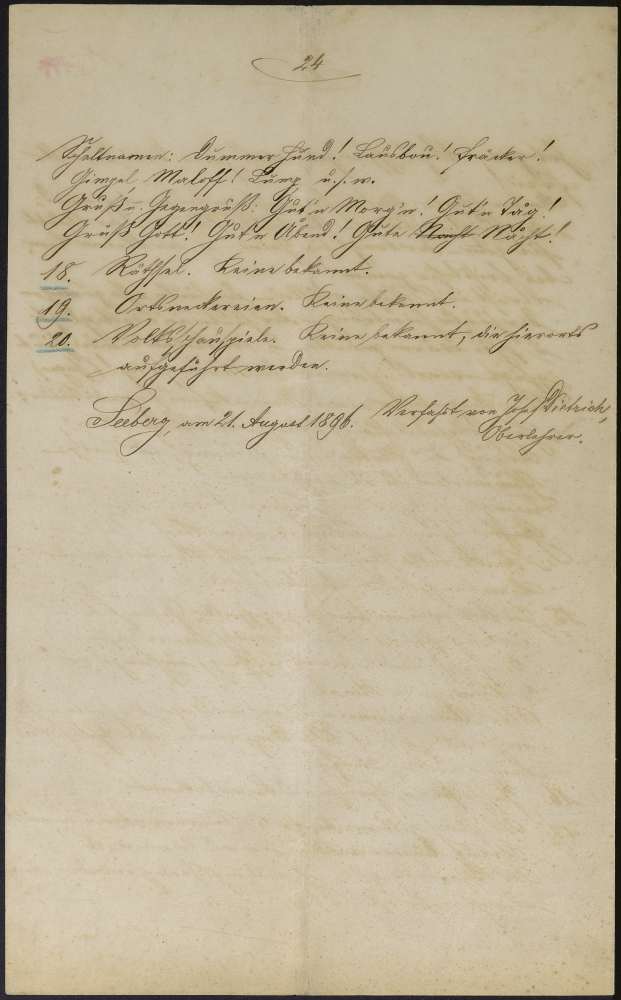 24
Scheltnamen: Dummer Hund! Lausbou! Fräcker!
Gimpel, Maloff! Lump u.s.w.
Gruß u. Gegengruß: Gut'n Morg'n! Gut'n Tåg!
Grüß Gott! Gut'n Åbend! Gute Nacht Nåcht!
18. Räthsel. Keine bekannt.
19. Ortsneckereien. Keine bekannt.
20. Volksschauspiele. Keine bekannt, die hierorts
aufgeführt werden.
Seeberg, am 21. August 1896. Verfaßt von Josef Dietrich,
Oberlehrer.